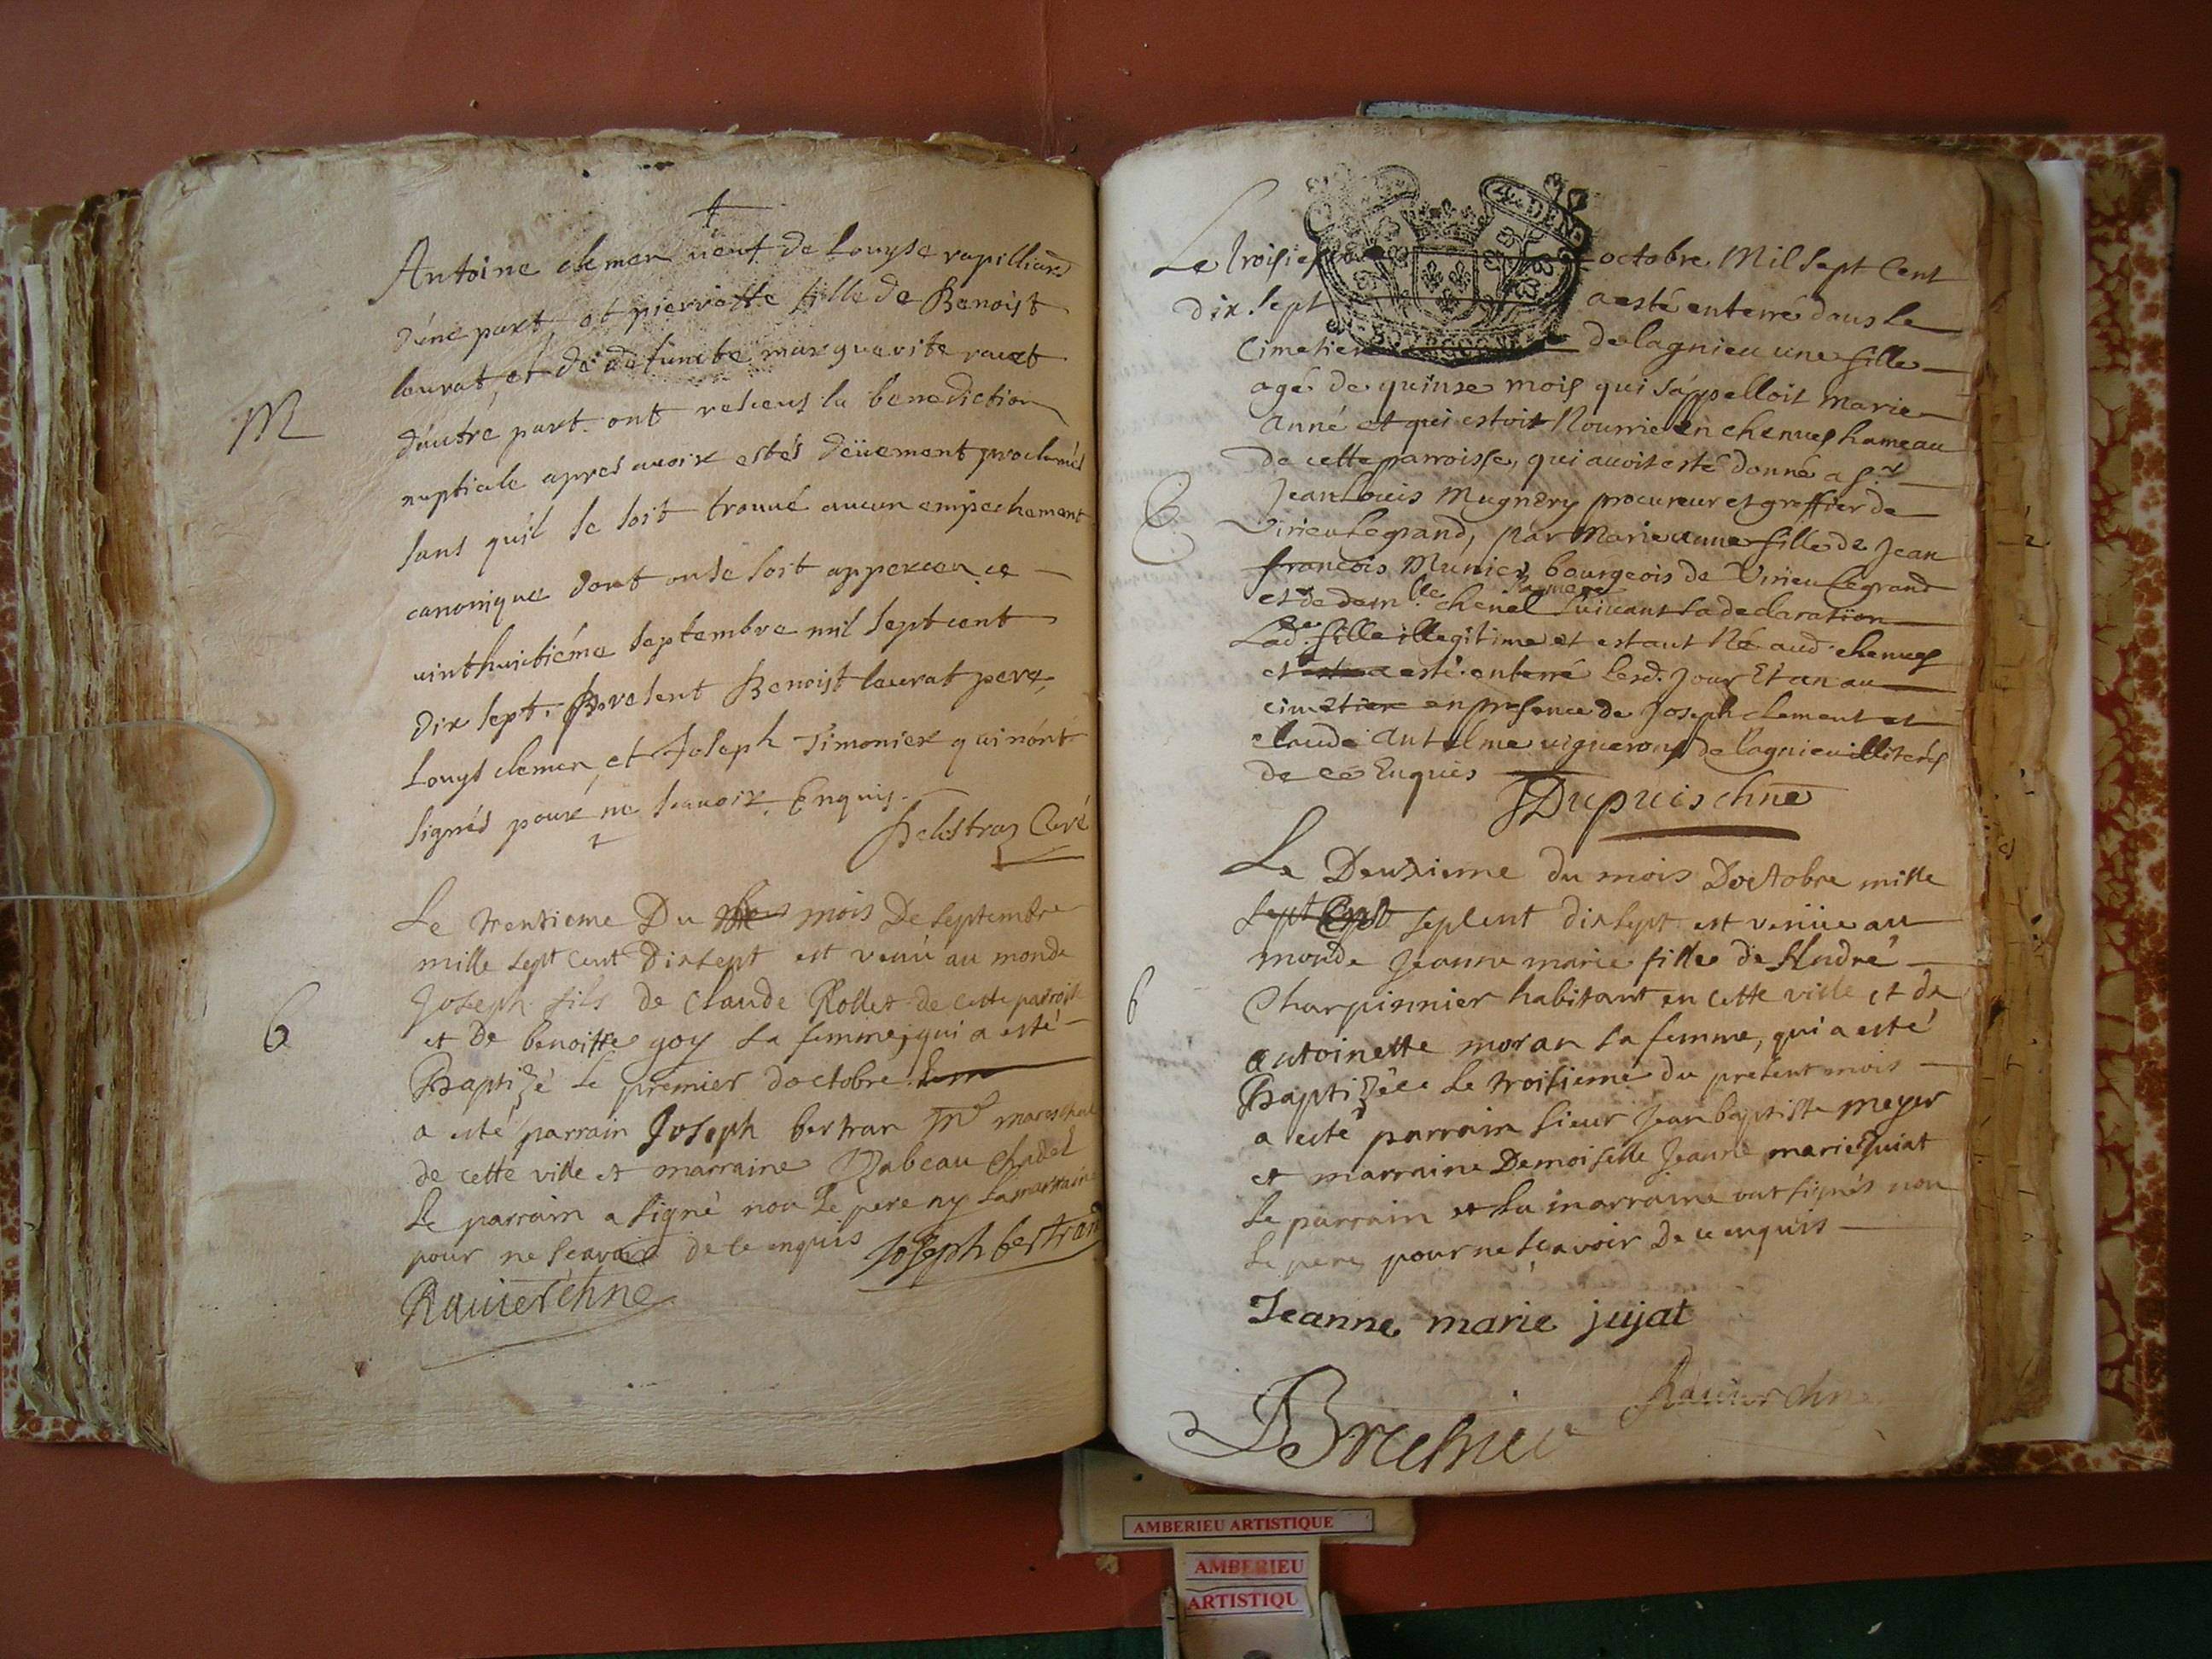 Antoine clemen veuf de Louyse rapilliard
d'une part, et pierrette fille de Benoist
laurat, et de defuncte marguerite
d'autre part. ont receus la benediction
nuptiale apres avoir estés deüement proclamés
sans quil se soit trouvé aucun empechement
canonique dont on se soit apperceu. ce
vinthuictiéme septembre mil sept cent
dix sept. present Benoist laurat pere,
Louys clemen, et Joseph Simonier qui n'ont
signés pour ne scavoir. Enquis.
Curé
M
Le trentieme Du mois De septembre
mille sept cent Dixsept est venú au monde
Joseph fils de Claude Rollet de cette parroisse
et De benoitte goy sa femme, qui a esté
Baptizé le premier doctobre
a esté parrain Joseph bertran me mareschal
de cette ville et marraine Izabeau chadel
le parrain a signé non le pere ny la marraine
pour ne scavoir de ce enquis Joseph bertrand
Ravier chne
B
4. DEN
Le troisieme octobre Mil sept Cent
dix sept a esté enterré dans le
Cimetiere de lagnieu une fille
agé de quinse mois qui s'appelloit marie
anné et qui estoit Nourrie en chenves hameau
de cette parroisse, qui avoit esté donné a sr
Jean Louis Mugnery procureur et greffier de
Virieu Legrand, par Marie anne fille de Jean
francois Munier bourgeois de Virieu Legrand
et de demlle chenel suivant sa declaration
Lade. fille illegitime et estant Né aud chenves
et a esté enterré Lesd. Jour Et an au
cimetiere en presence de Joseph clement et
claude antelme vignerons de Lagnieu illiterés
de ce Enquis
Dupuis chne
Le Deuxieme du mois Doctobre mille
sept Cent septcent dixsept est venüe au
monde Jeanne marie fille de André
Charpinnier habitant en cette ville et de
antoinette moran sa femme, qui a esté
Baptizée le troisieme du present mois
a esté parrain sieur Jean baptiste meyer
et marraine Demoiselle Jeanne marie Jujat
le parrain et la marraine ont signés non
le pere pour ne scavoir De ce enquis
Jeanne marie jujat
Ravier chne
AMBERIEU ARTISTIQUE
AMBERIEU
ARTISTIQU